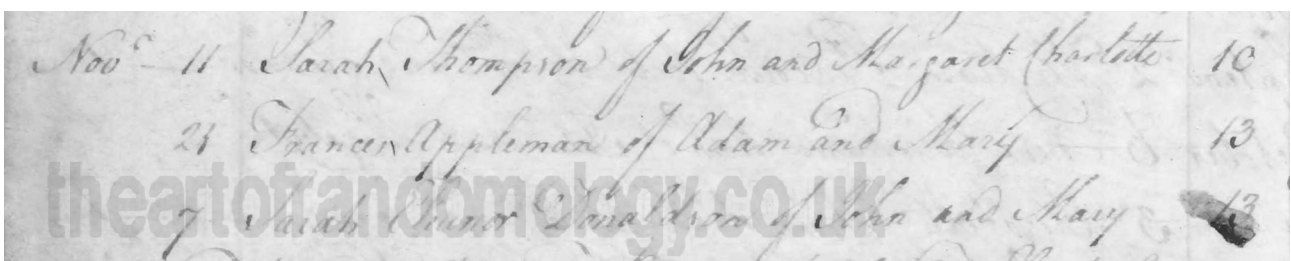 Novr 11 Sarah Thompson of John and Margaret Charlotte 10
21 Frances Appleman of Adam and Mary 13
7 Sarah Elinor Donaldson of John and Mary 13
theartofrandomology.co.uk